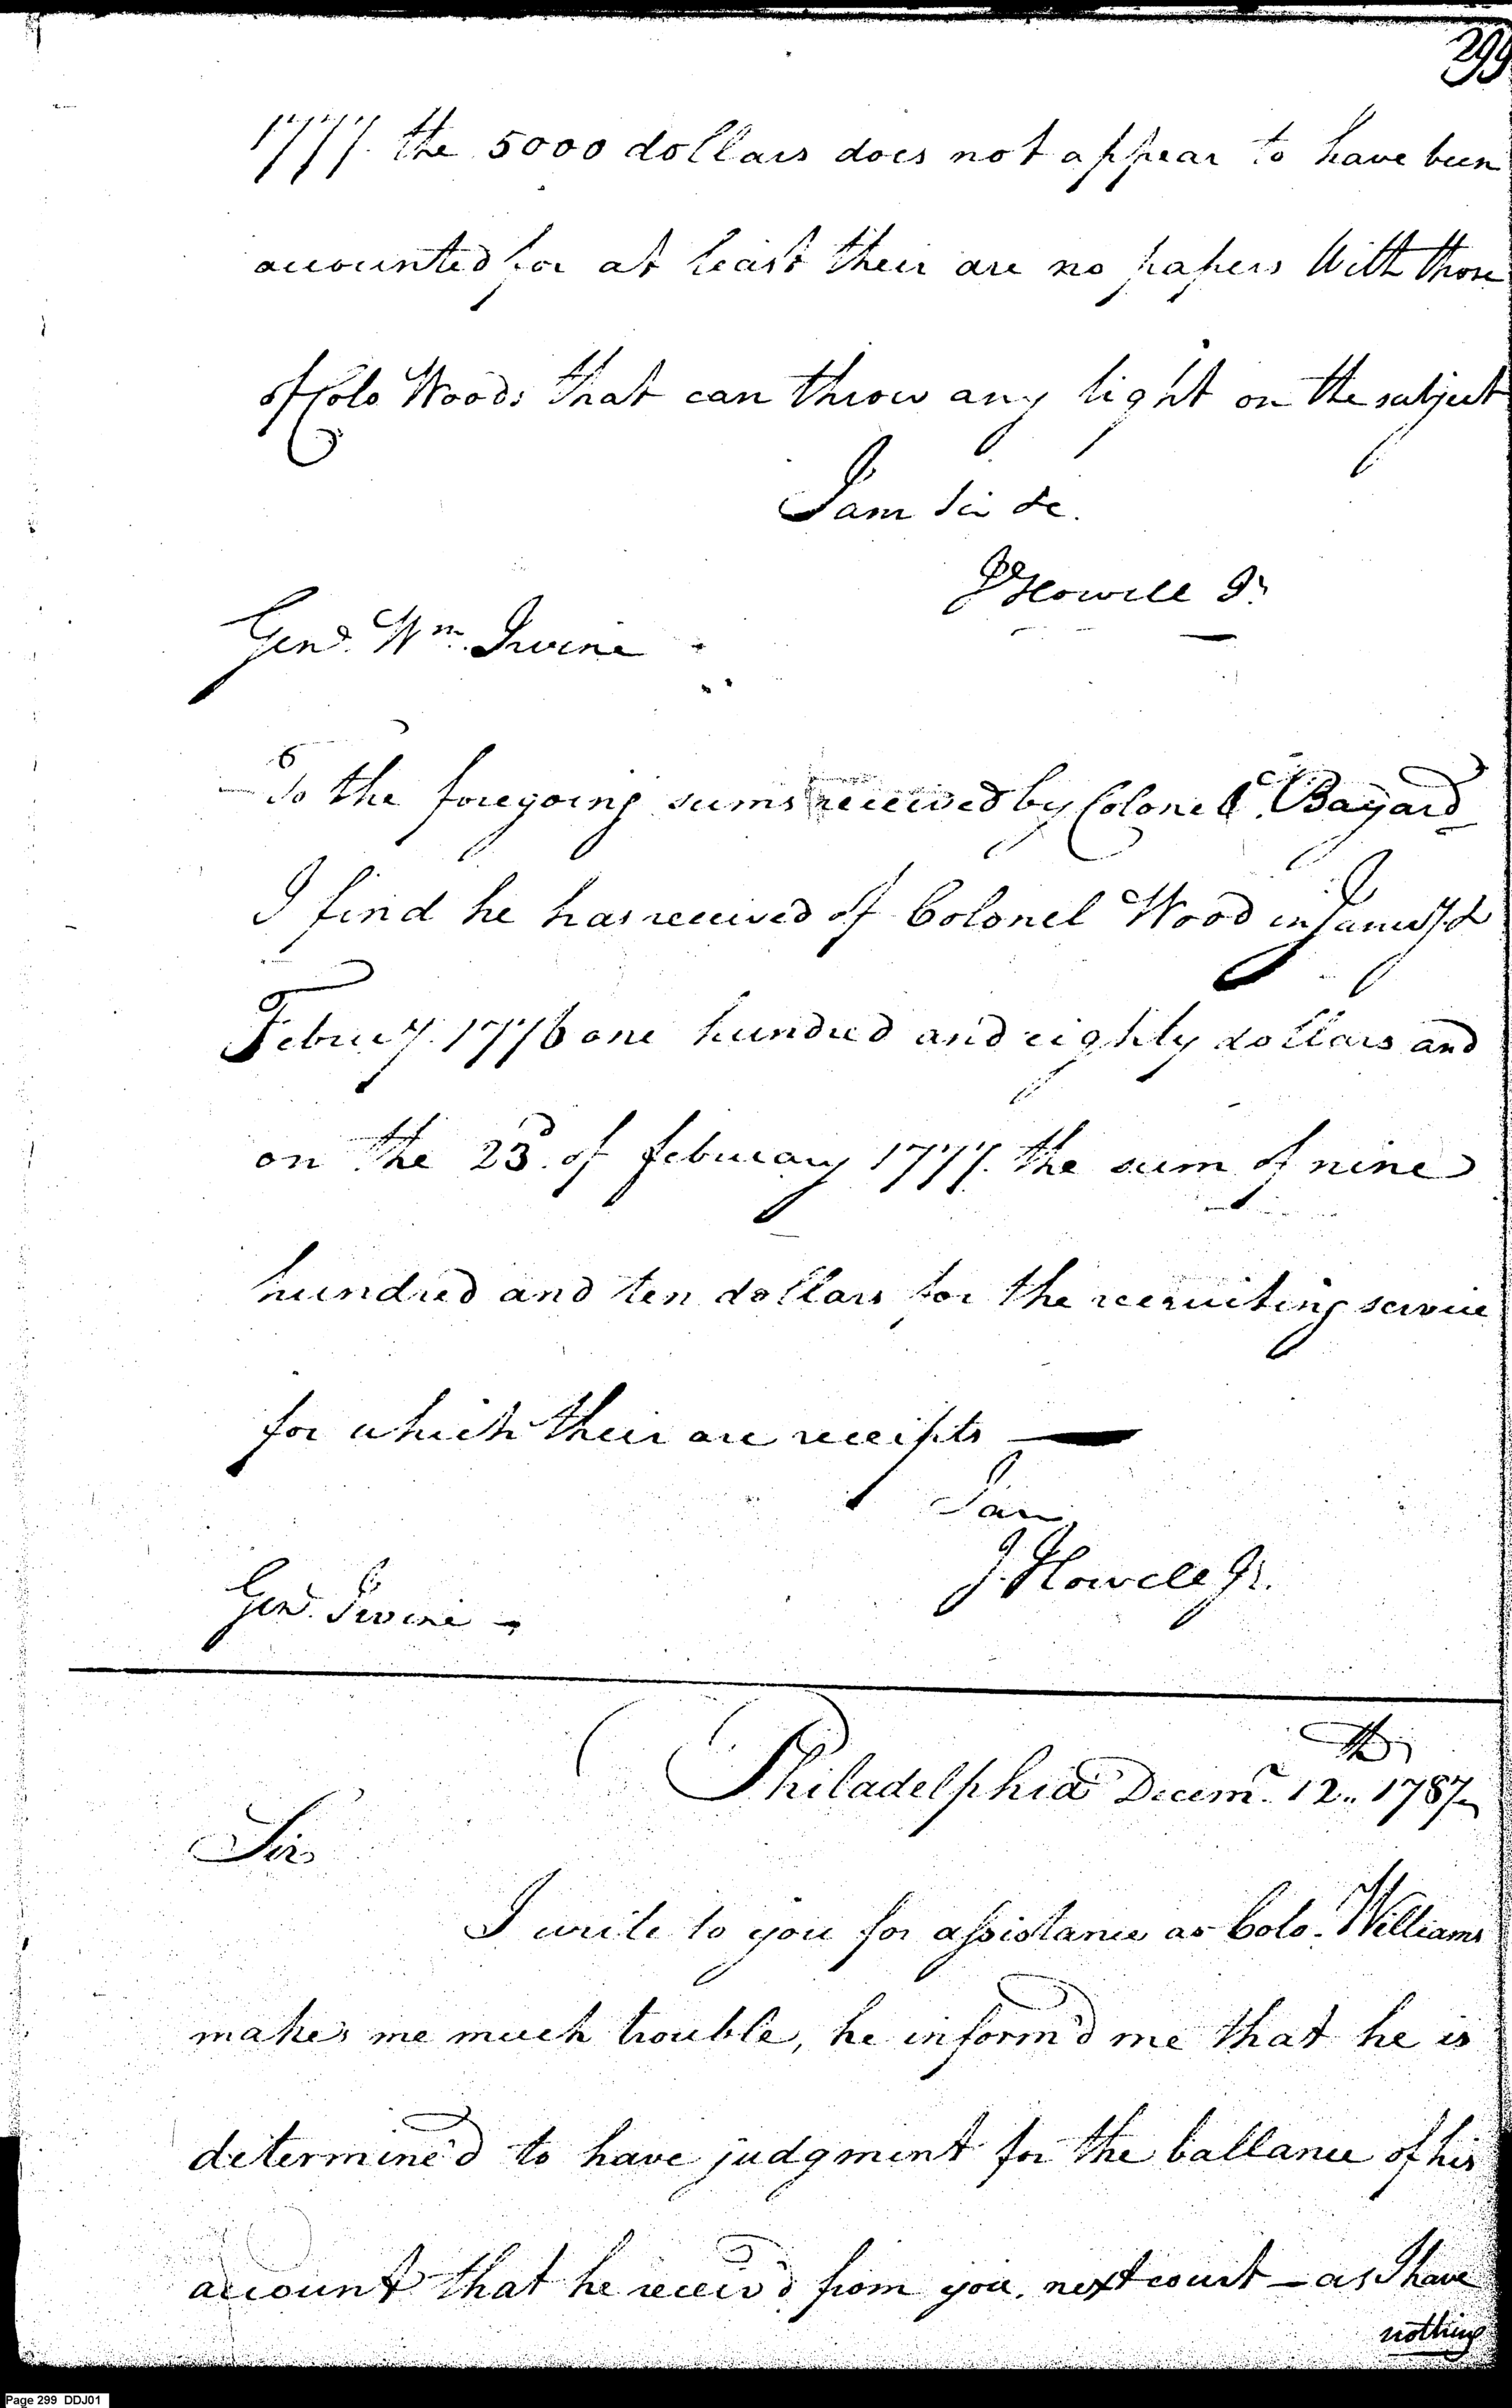 299
1777. the 5000 dollars does not appear to have been
accounted for at least their are no papers With those
of Colo Woods that can throw any light on the subject
I am Sir &c.
J Howell Jr.
Genl. Wm. Irvine
To the foregoing sums received by Colonel Bayard
I find he has received of Colonel Wood in Janury &
Februy. 1776 one hundred and eighty dollars and
on the 23d. of february 1777. the sum of nine
hundred and ten dollars for the recruiting service
for which their are receipts —
I am
J. Howell Jr.
Genl. Irvine
Philadelphia Decemr. 12th 1787
Sir
I write to you for assistance as Colo. Williams
makes me much trouble, he inform'd me that he is
determine'd to have judgment for the ballance of his
account that he receiv'd from you, next court — as I have
nothing
Page 299 DDJ01